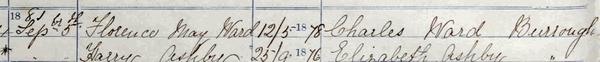 1881
Sepbr 5th Florence May Ward 12/5-1878 Charles Ward Burrough
" " Harry Ashby 25/9-1876 Elizabeth Ashby "